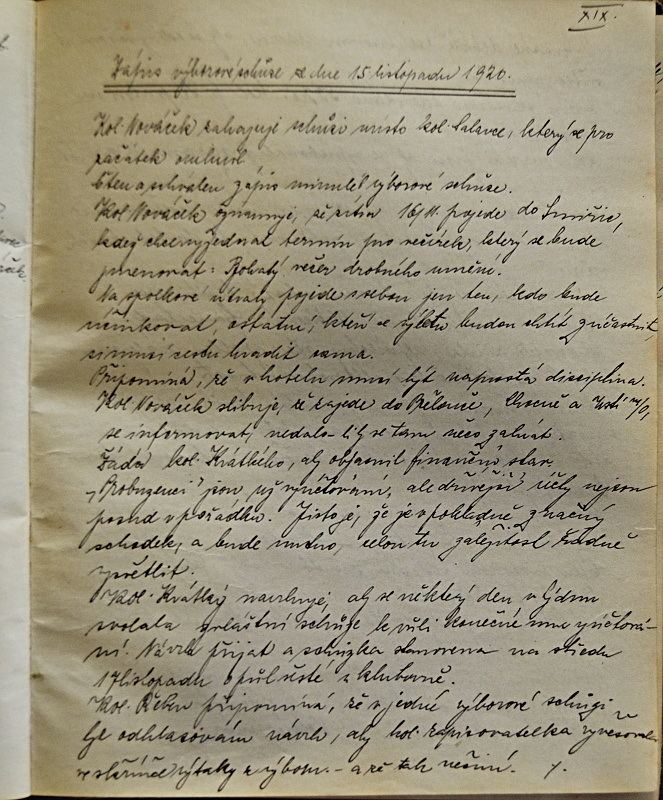 XIX.
Zápis výborové schůze ze dne 15 listopadu 1920.
Kol. Nováček zahajuje schůzi místo kol. Salavce, který se pro
začátek omluvil.
Čten a schválen zápis minulé výborové schůze.
Kol Nováček oznamuje, že zítra 16/11. pojede do Smiřic,
kdež chce vyjednat termín pro večírek, který se bude
jmenovat: Bohatý večer drobného umění.
Na spolkové útraty pojede s sebou jen ten, kdo bude
účinkovat, ostatní, kteří se výletu budou chtít zúčastnit,
si musí cestu hradit sama.
Připomíná, že v hotelu musí být naprostá disciplina.
Kol Nováček slibuje, že zajede do Přelouče, Chocně a Ústí n/O,
se informovat, nedalo-li by se tam něco zahrát.
Žádá kol. Krátkého, aby objasnil finanční stav.
„Probuzenci" jsou už vyúčtováni, ale dřívější účty nejsou
posud v pořádku. Jisto je, že je v pokladně značný
schodek, a bude nutno, celou tu záležitost řádně
vysvětlit.
Kol. Krátký navrhuje, aby se některý den v týdnu
svolala zvláštní schůze k vůli konečnému vyúčtová-
ní. Návrh přijat a schůzka stanovena na středu
17 listopadu o půl šesté v klubovně.
Kol. připomíná, že v jedné výborové schůzi
byl odhlasován návrh, aby kol. zapisovatelka vyvěšovala
ve skřínce výtahy z výbor. – a že tak nečiní. /.